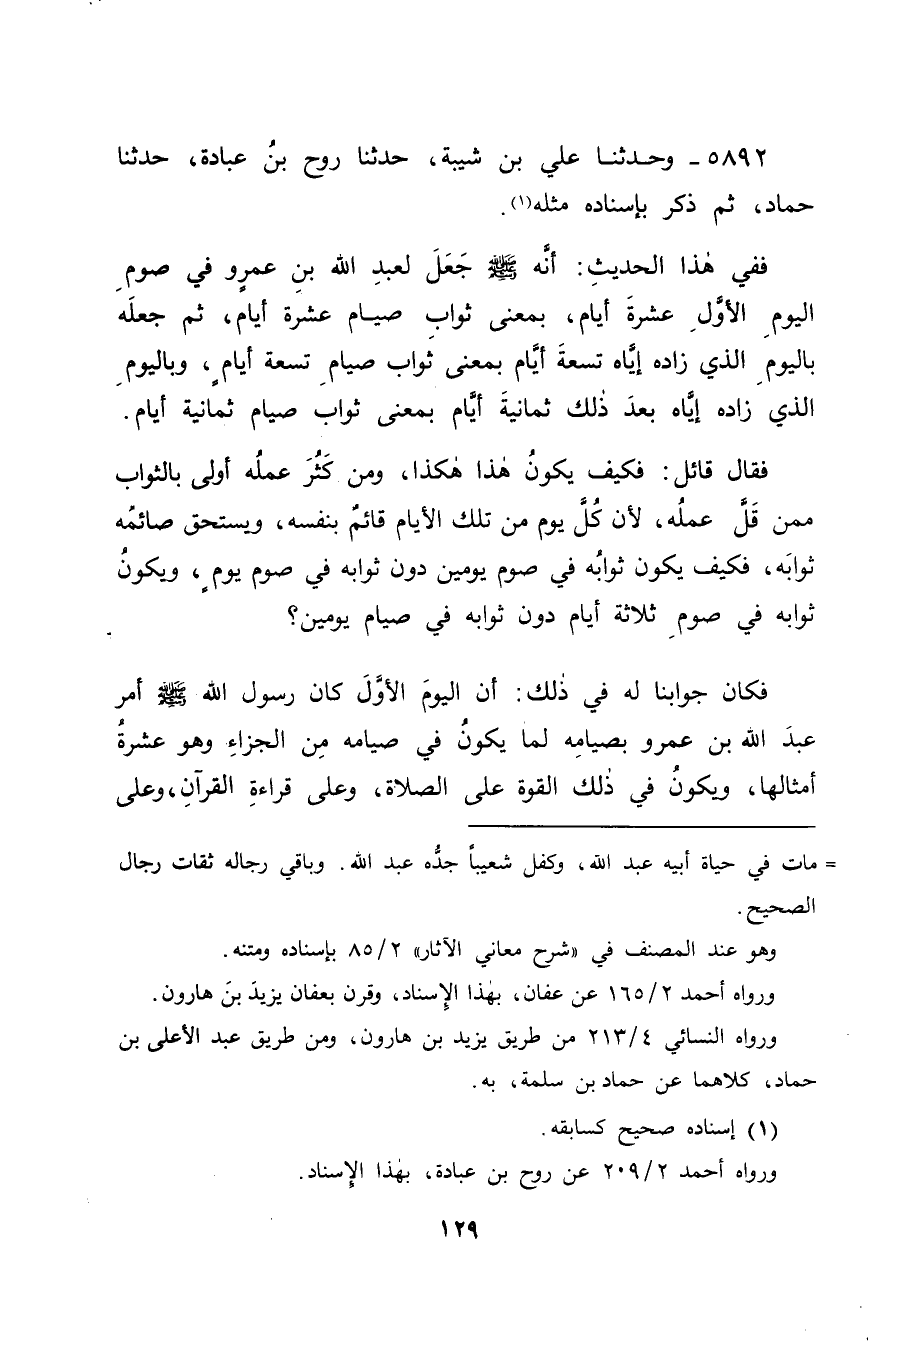 ٥٨٩٢ ـ وحـدثنـا علي بن شيبة، حدثنا روح بنُ عبادة، حدثنا
حماد، ثم ذكر بإسناده مثله(١).
ففي هٰذا الحديثِ: أنَّه ﷺ جَعَلَ لعبدِ الله بنِ عمرٍو في صومِ
اليومِ الأوَّلِ عشرةَ أيام، بمعنى ثوابِ صيـام عشرة أيام، ثم جعلَه
باليومِ الذي زاده إيَّاه تسعةَ أيَّام بمعنى ثواب صيامِ تسعة أيامٍ، وباليومِ
الذي زاده إيَّاه بعدَ ذٰلك ثمانيةَ أيَّام بمعنى ثواب صيام ثمانية أيام.
فقال قائل: فكيف يكونُ هٰذا هٰكذا، ومن كَثُرَ عملُه أولى بالثواب
ممن قَلَّ عملُه، لأن كُلَّ يوم من تلك الأيام قائمٌ بنفسه، ويستحق صائمُه
ثوابَه، فكيف يكون ثوابُه في صوم يومين دون ثوابه في صوم يومٍ، ويكونُ
ثوابه في صومِ ثلاثة أيام دون ثوابه في صيام يومين؟
فكان جوابنا له في ذٰلك: أن اليومَ الأوَّلَ كان رسول الله ﷺ أمر
عبدَ الله بن عمرو بصيامِه لما يكونُ في صيامه مِن الجزاءِ وهو عشرةُ
أمثالها، ويكونُ في ذٰلك القوة على الصلاة، وعلى قراءةِ القرآنِ، وعلى
= مات في حياة أبيه عبد الله، وكفل شعيباً جدُّه عبد الله. وباقي رجاله ثقات رجال
الصحيح.
وهو عند المصنف في «شرح معاني الآثار» ٨٥/٢ بإسناده ومتنه.
ورواه أحمد ١٦٥/٢ عن عفان، بهٰذا الإِسناد، وقرن بعفان يزيدَ بنَ هارون.
ورواه النسائي ٢١٣/٤ من طريق يزيد بن هارون، ومن طريق عبد الأعلى بن
حماد، كلاهما عن حماد بن سلمة، به.
(١) إسناده صحيح كسابقه.
ورواه أحمد ٢٠٩/٢ عن روح بن عبادة، بهٰذا الإِسناد.
١٢٩